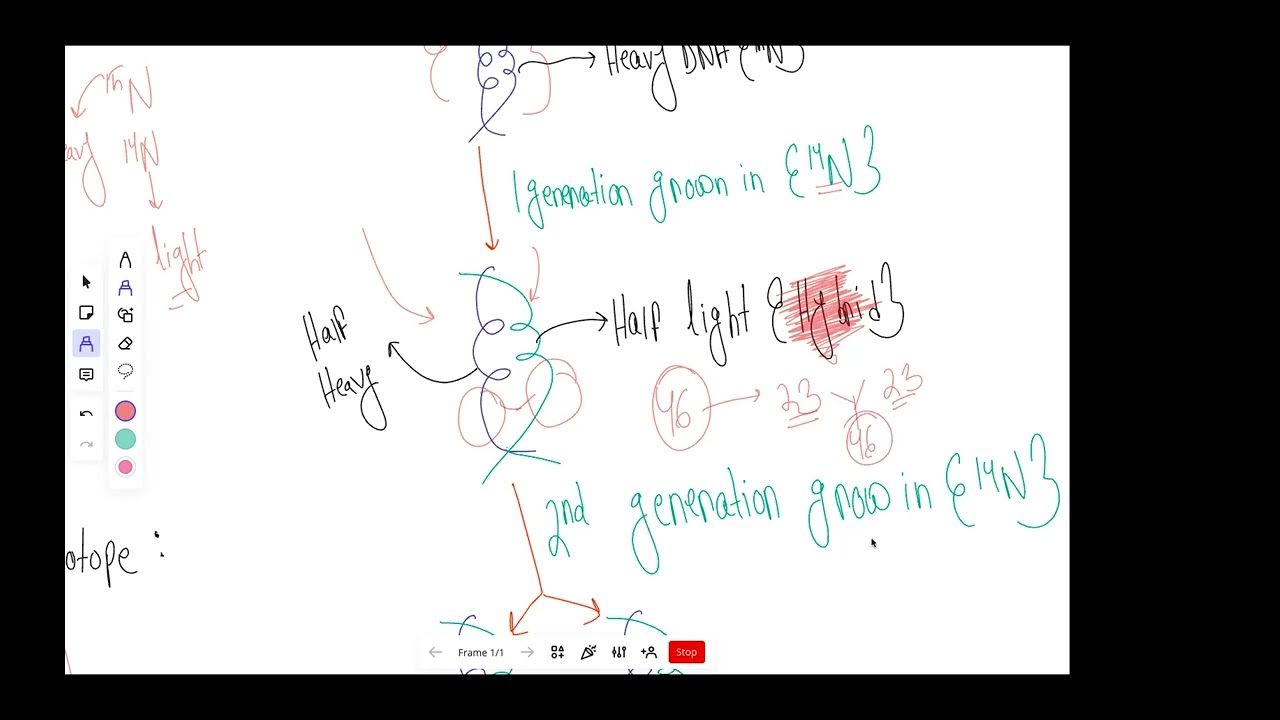 Heavy DNA
15N
14N
light
1 generation grown in {14N}
Half light {Hybrid}
Half
Heavy
46 23 23
46
2nd generation grow in {14N}
otope :
Frame 1/1
Stop